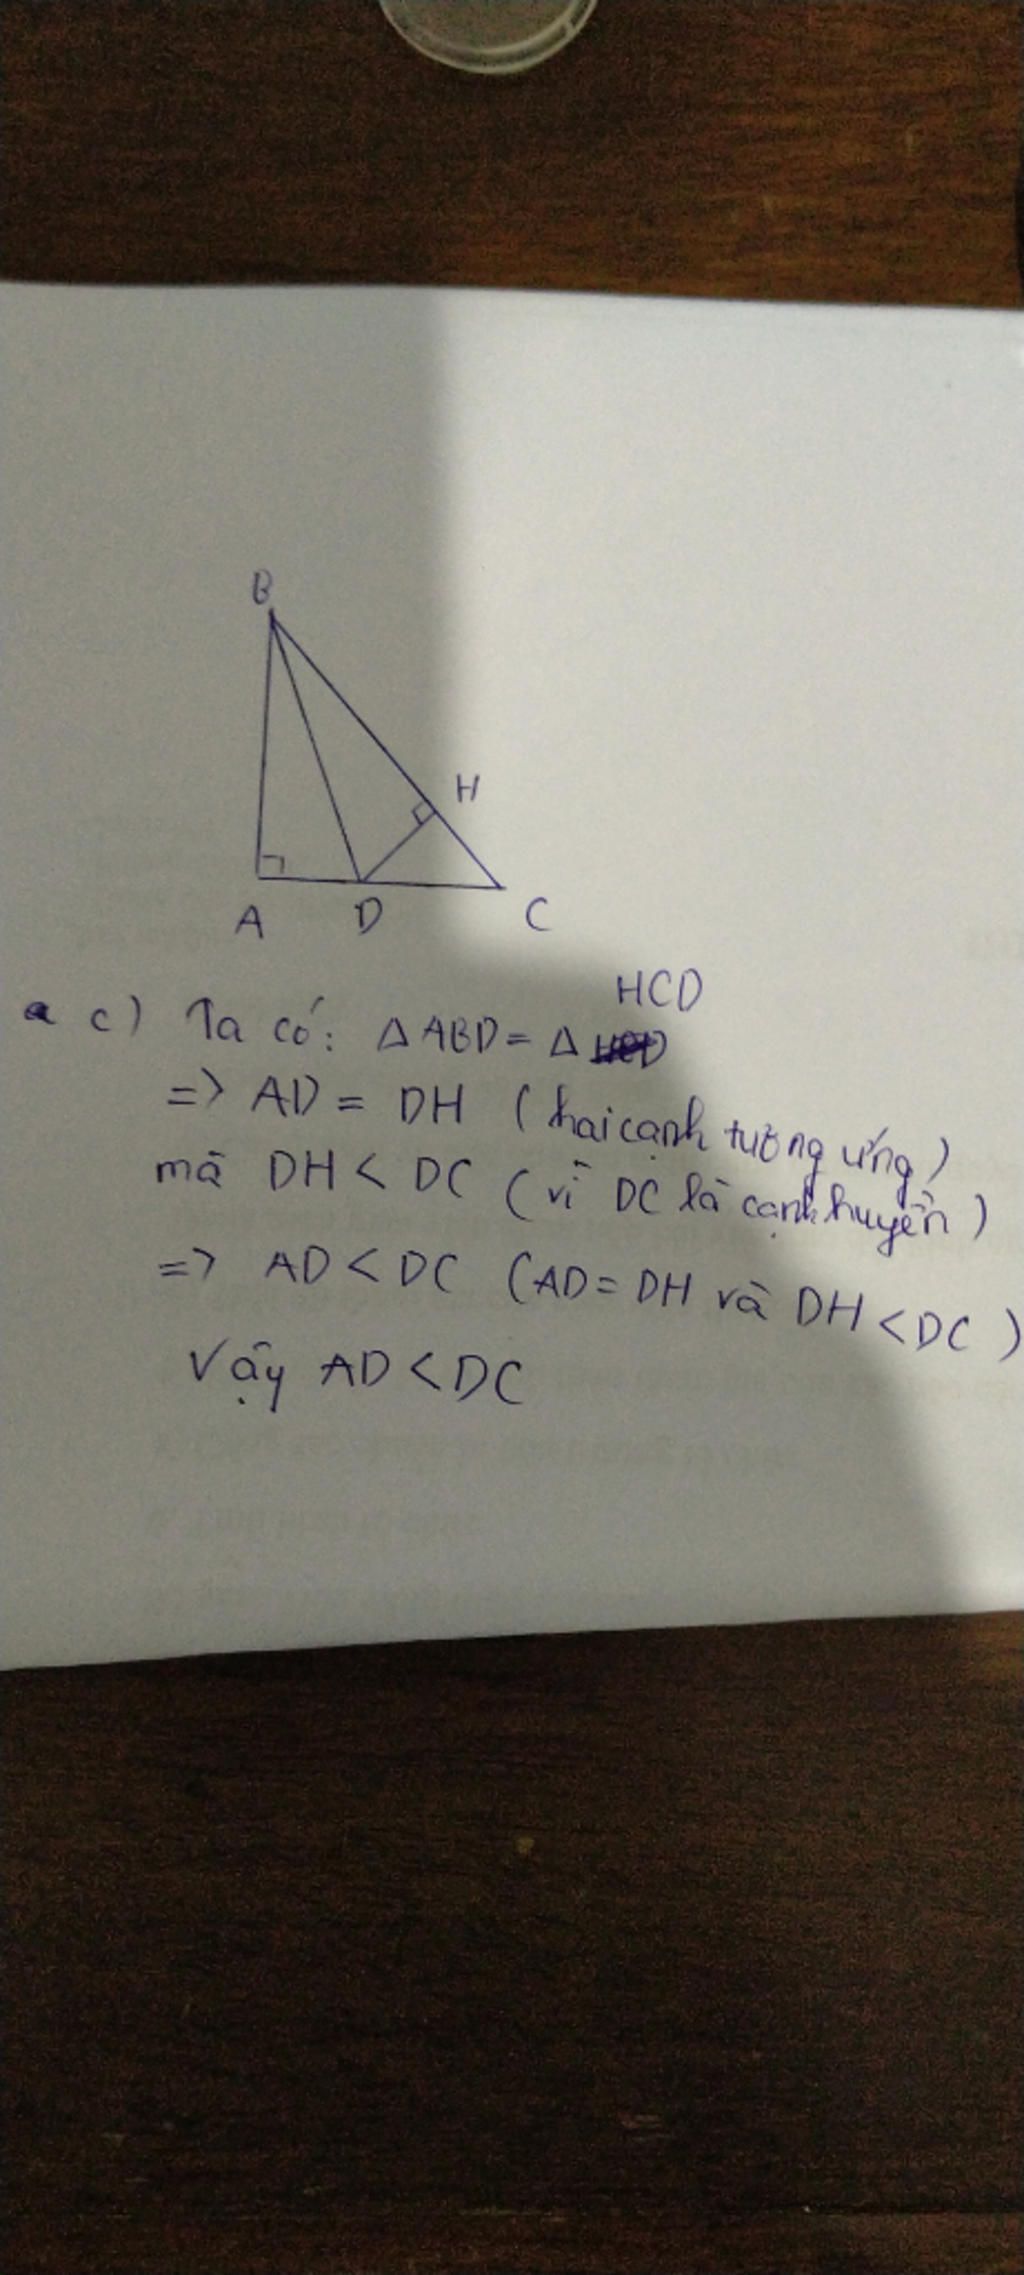 B
H
A D C
HCD
c) Ta có: Δ ABD = Δ
=> AD = DH (hai cạnh tương ứng)
mà DH < DC (vì DC là cạnh huyền)
=> AD < DC (AD = DH và DH < DC)
Vậy AD < DC